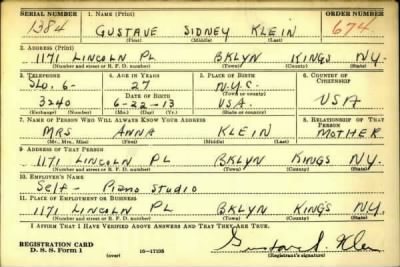 SERIAL NUMBER 1. NAME (Print) ORDER NUMBER
1384 GUSTAVE SIDNEY KLEIN 674
(First) (Middle) (Last)
2. ADDRESS (Print)
1171 LINCOLN PL BKLYN KINGS N.Y.
(Number and street or R. F. D. number) (Town) (County) (State)
3. TELEPHONE 4. AGE IN YEARS 5. PLACE OF BIRTH 6. COUNTRY OF CITIZENSHIP
SLO. 6- 27 N.Y.C.
DATE OF BIRTH (Town or county)
3240 6-22-13 USA. USA
(Exchange) (Number) (Mo.) (Day) (Yr.) (State or country)
7. NAME OF PERSON WHO WILL ALWAYS KNOW YOUR ADDRESS 8. RELATIONSHIP OF THAT PERSON
MRS ANNA KLEIN MOTHER
(Mr., Mrs., Miss) (First) (Middle) (Last)
9. ADDRESS OF THAT PERSON
1171 LINCOLN PL BKLYN KINGS N.Y.
(Number and street or R. F. D. number) (Town) (County) (State)
10. EMPLOYER'S NAME
Self - Piano Studio
11. PLACE OF EMPLOYMENT OR BUSINESS
1171 LINCOLN PL BKLYN KINGS N.Y.
(Number and street or R. F. D. number) (Town) (County) (State)
I AFFIRM THAT I HAVE VERIFIED ABOVE ANSWERS AND THAT THEY ARE TRUE.
REGISTRATION CARD
D. S. S. Form 1 (over) 16-17105 (Registrant's signature)